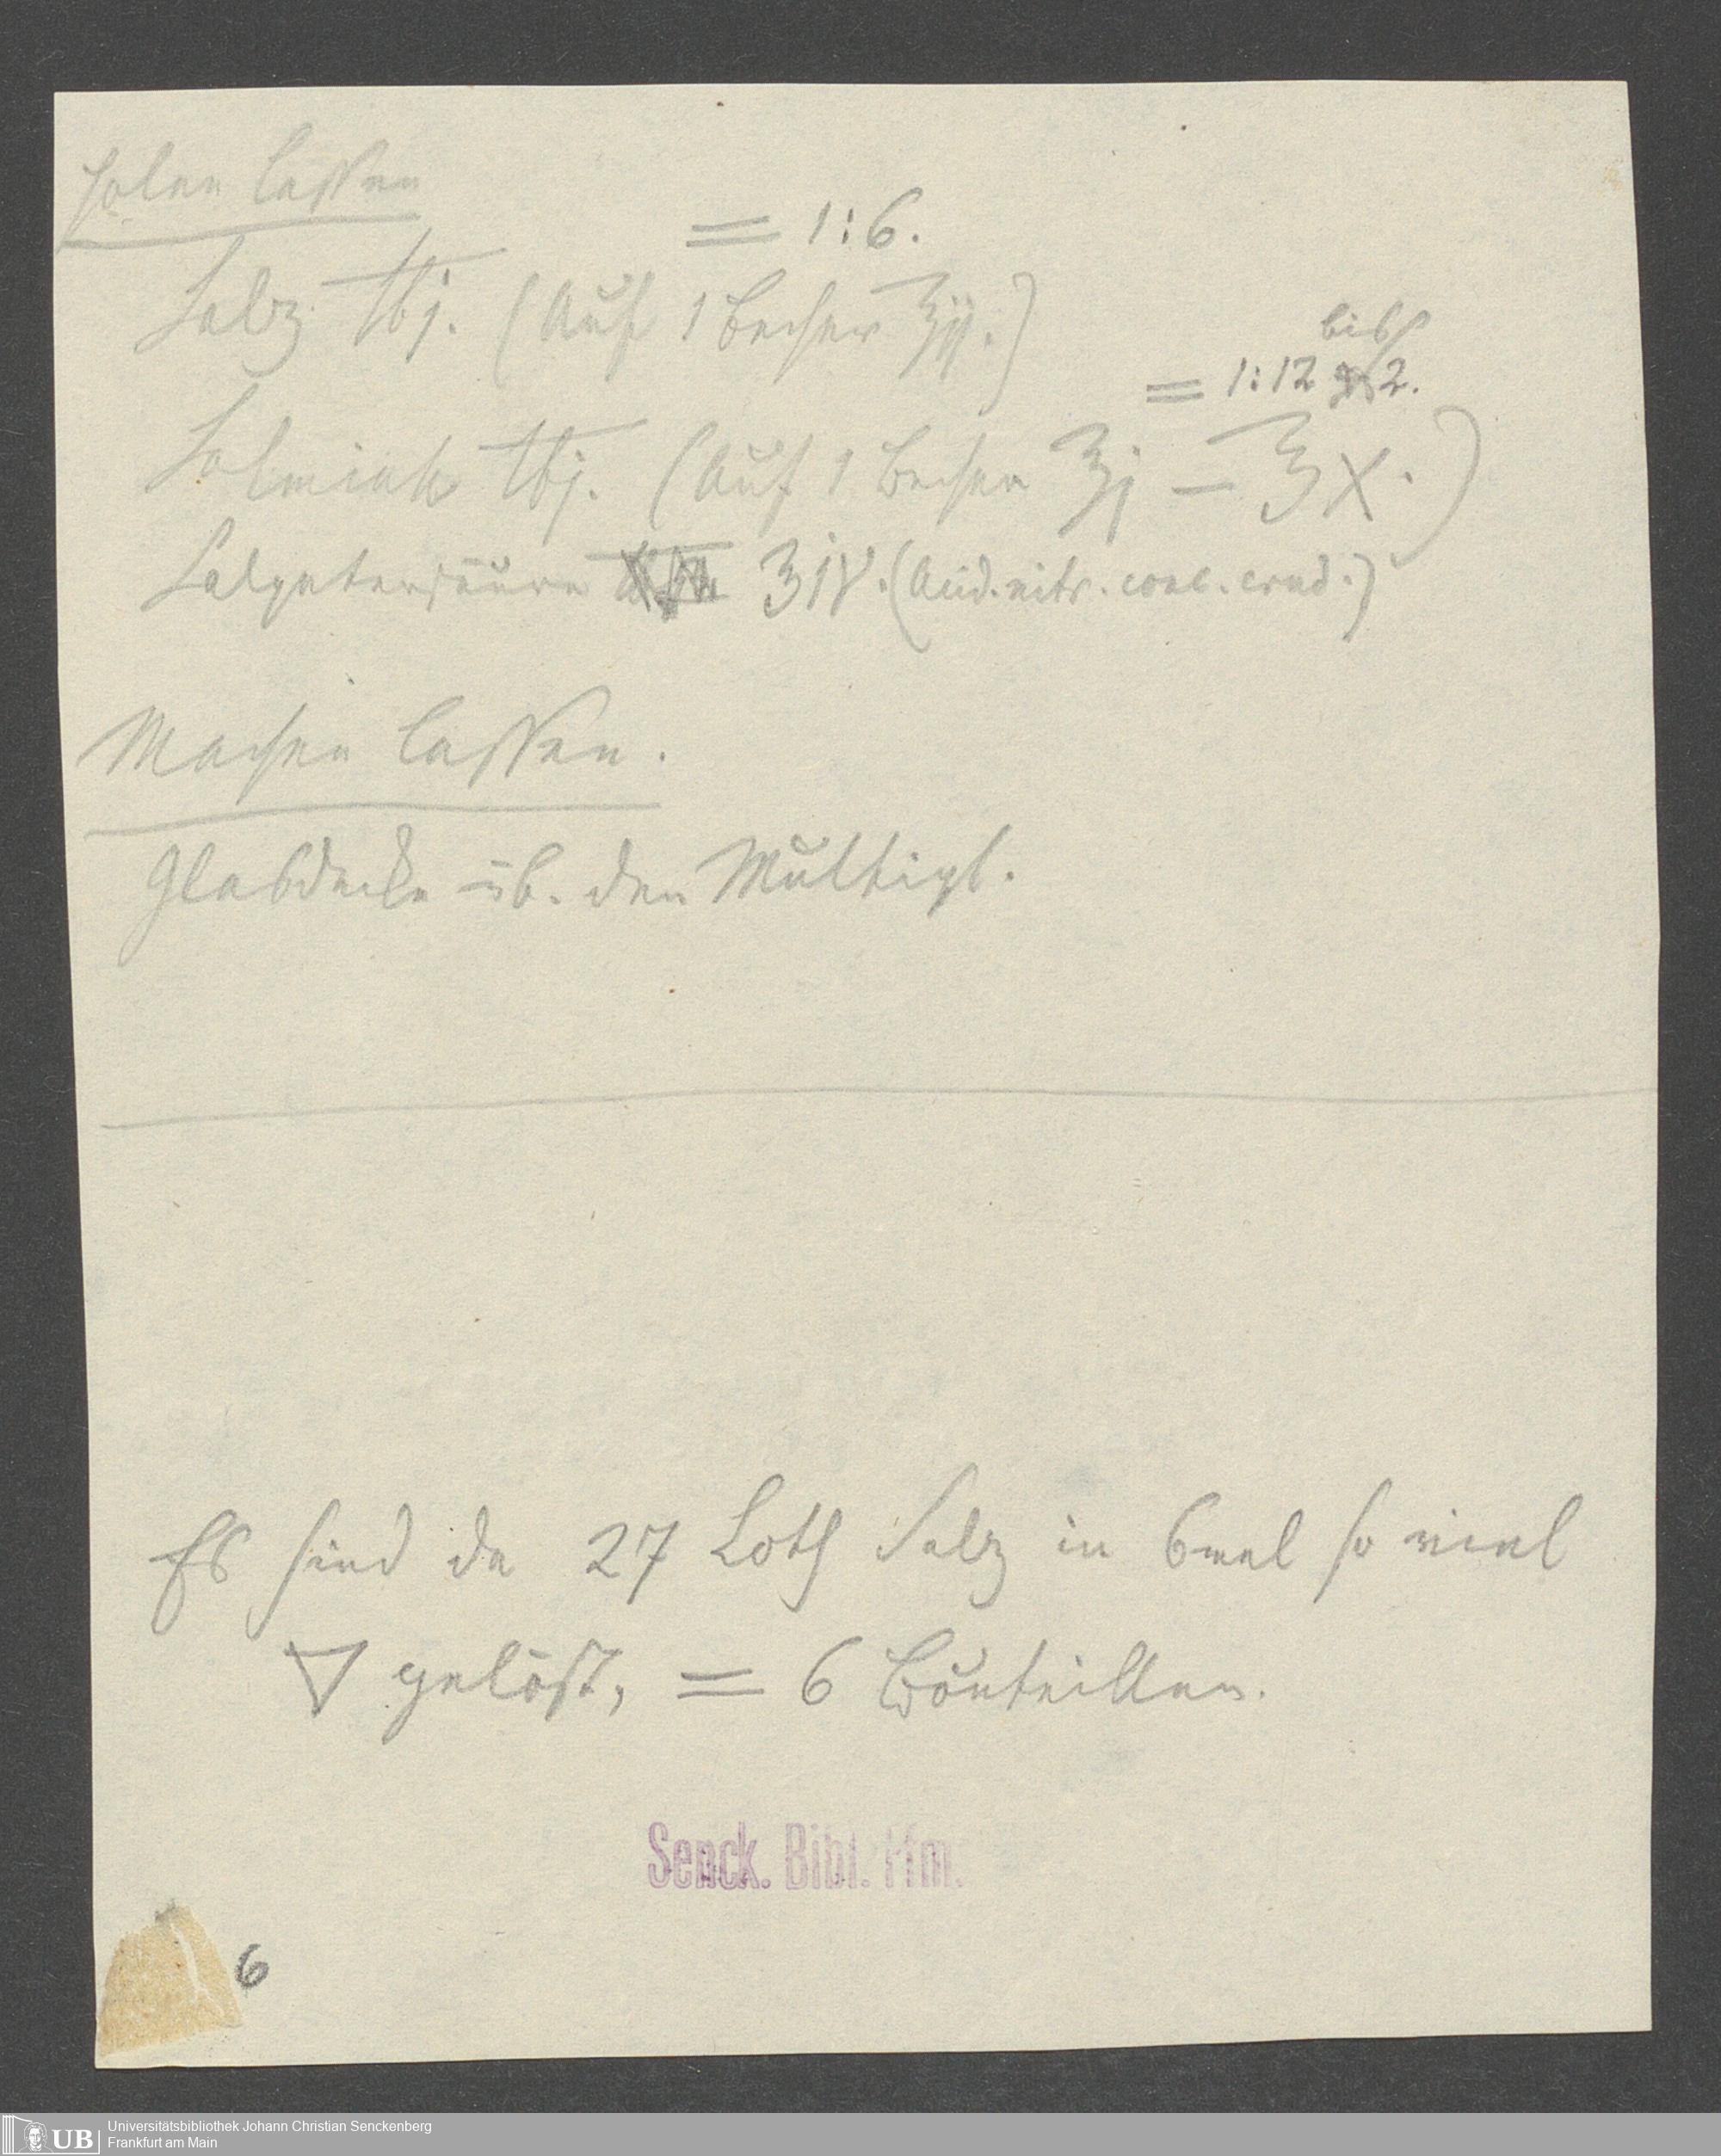 holen lassen
= 1:6.
Salz ℔j. (Auf 1 Becher ℥ij.)
bis
= 1:12 2.
Salmiak ℔j. (Auf 1 Becher ℥j – ʒx.)
Salpetersäure ℥iv. (Acid. nitr. conc. crud.)
Machen lassen.
Glasdecke üb. den Multipl.
Es sind da 27 Loth Salz in 6mal so viel
🜄 gelöst, = 6 Bouteillen.
Senck. Bibl. Ffm.
6
UB Universitätsbibliothek Johann Christian Senckenberg
Frankfurt am Main